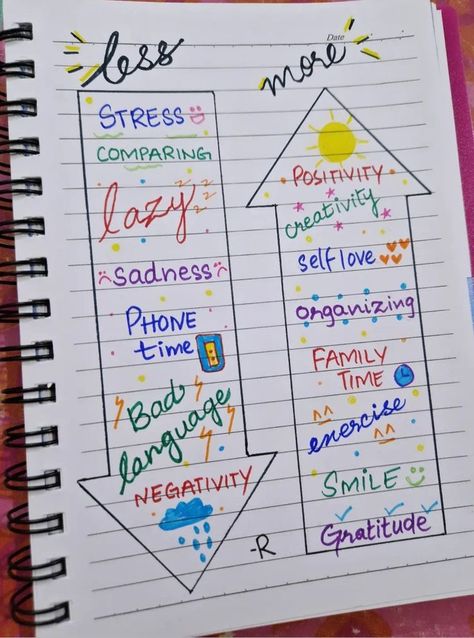 less
STRESS
COMPARING
lazy
zzz
Sadness
PHONE
time
Bad
language
NEGATIVITY
Date
more
POSITIVITY
creativity
self love
organizing
FAMILY
TIME
exercise
SMILE
Gratitude
-R